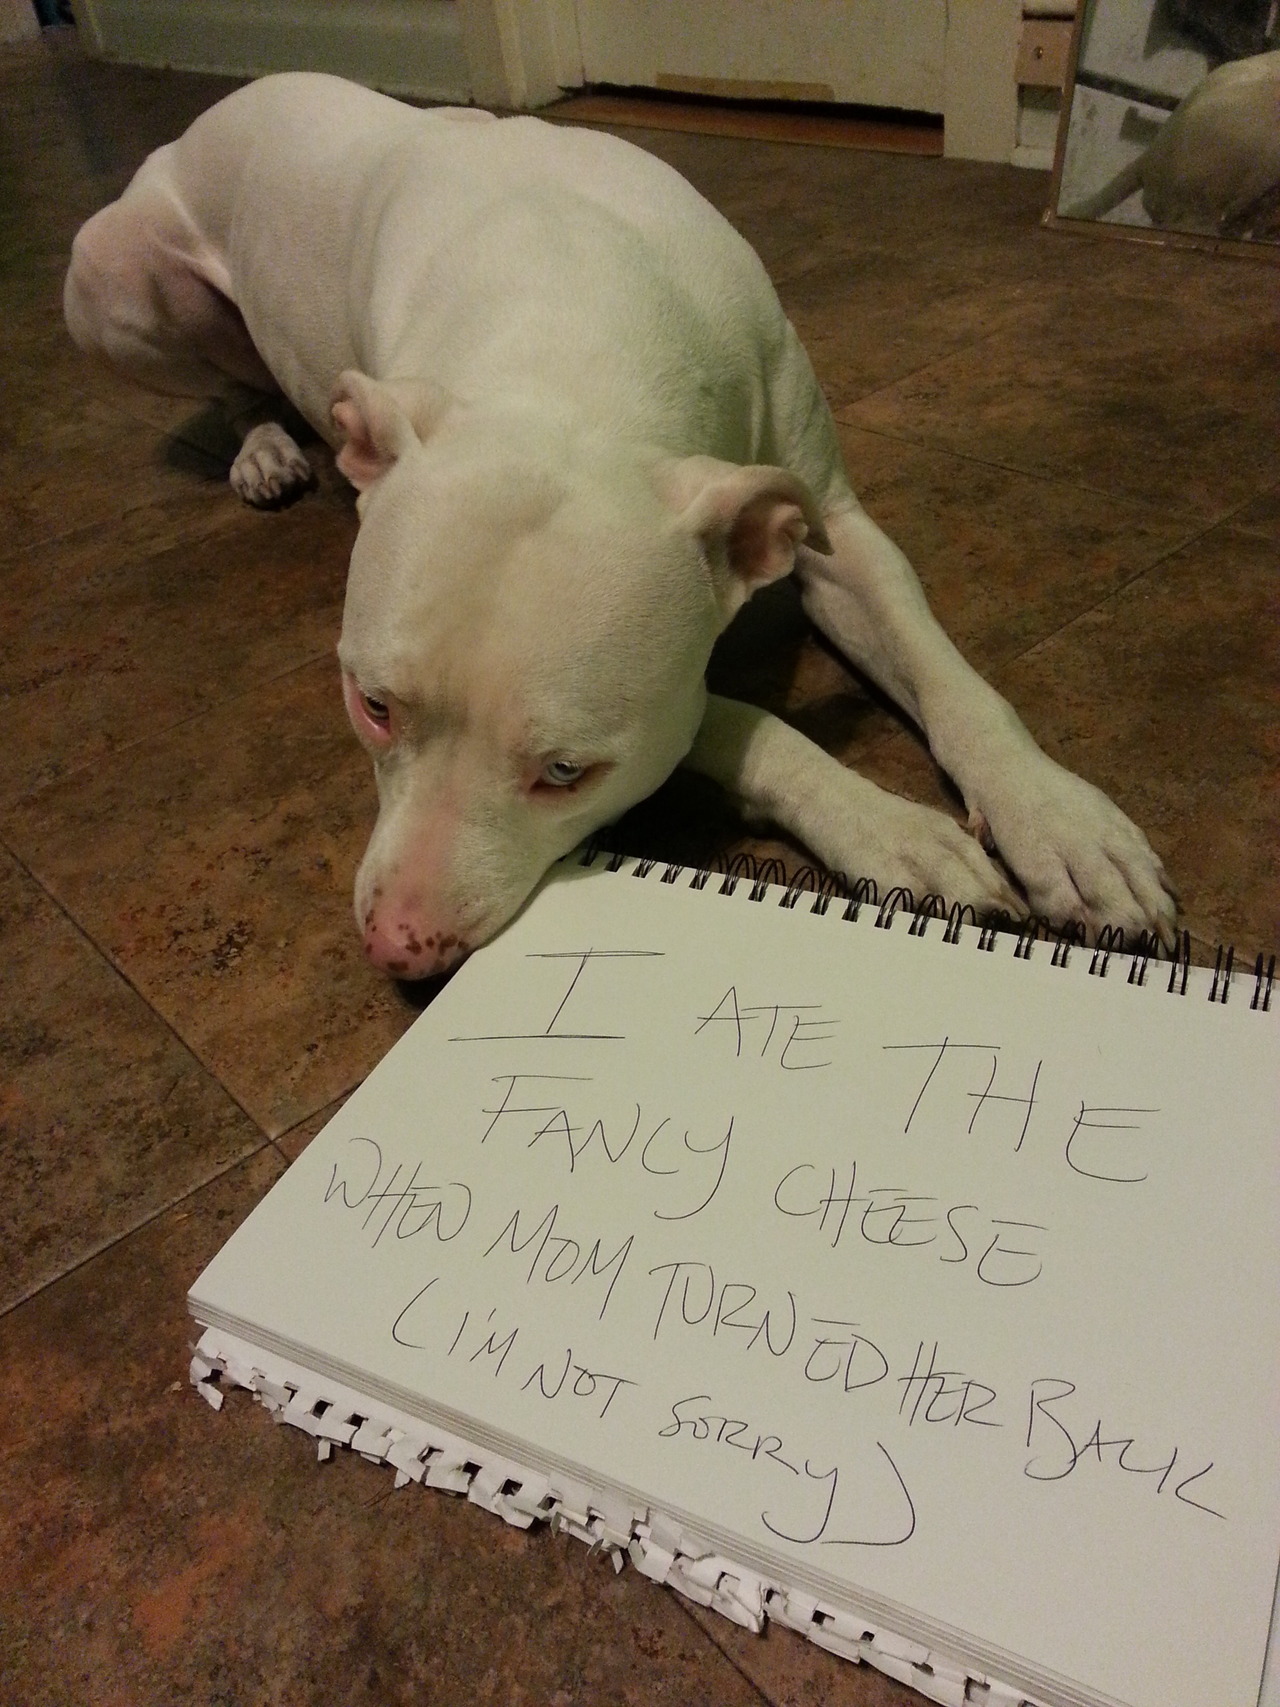 I ATE THE
FANCY CHEESE
WHEN MOM TURNED HER BACK
(I'M NOT SORRY)